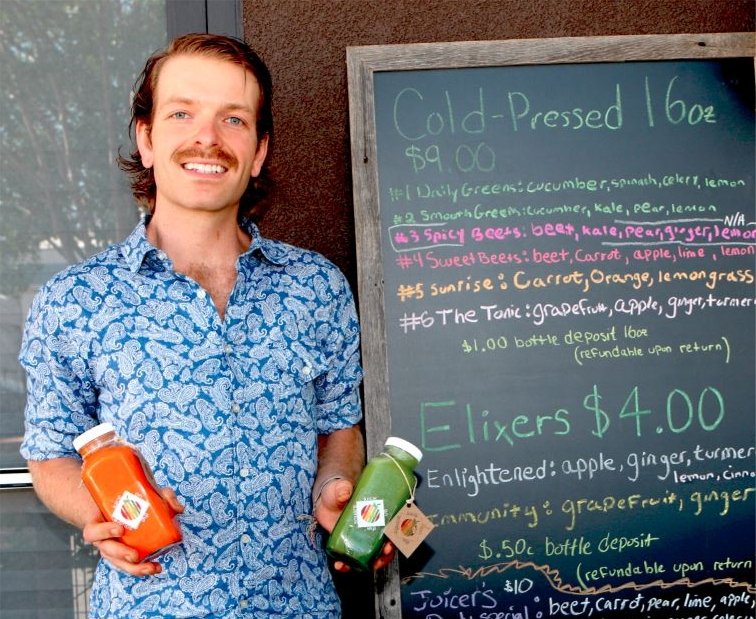 Cold-Pressed 16oz
$9.00
#1 Daily Greens: cucumber, spinach, celery, lemon
#2 Smooth Greens: cucumber, kale, pear, lemon
N/A
#3 Spicy Beets: beet, kale, pear, ginger, lemon
#4 Sweet Beets: beet, Carrot, apple, lime, lemon
#5 sunrise: Carrot, Orange, lemongrass
#6 The Tonic: grapefruit, apple, ginger, turmer
$1.00 bottle deposit 16oz
(refundable upon return)
Elixers $4.00
Enlightened: apple, ginger, turmer
lemon, cinna
Immunity: grapefruit, ginger
$.50c bottle deposit
(refundable upon return
Juicer's $10
special: beet, carrot, pear, lime, apple,